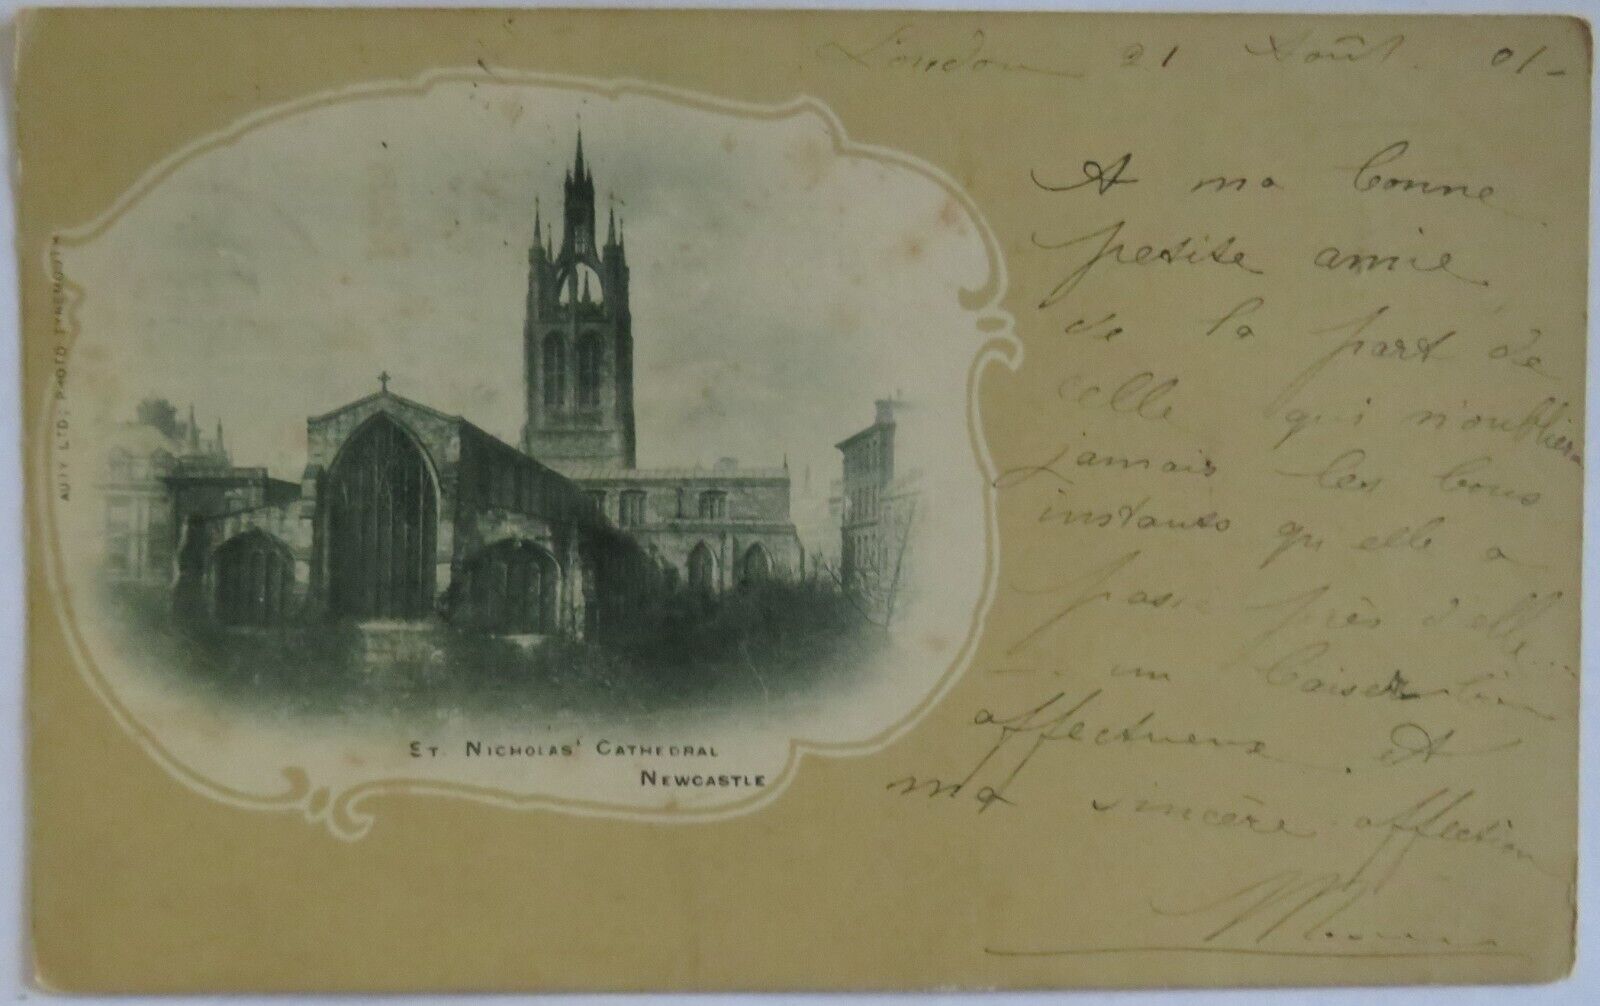 London 21 Août. 01-
A ma bonne
petite amie
de la part de
celle qui n'oubliera
jamais les bons
instants qu'elle a
passé près d'elle...
- un baiser bien
affectueux. Et
ma sincère affection
AUTY LTD; PHOTO TYNEMOUTH
ST. NICHOLAS' CATHEDRAL
NEWCASTLE